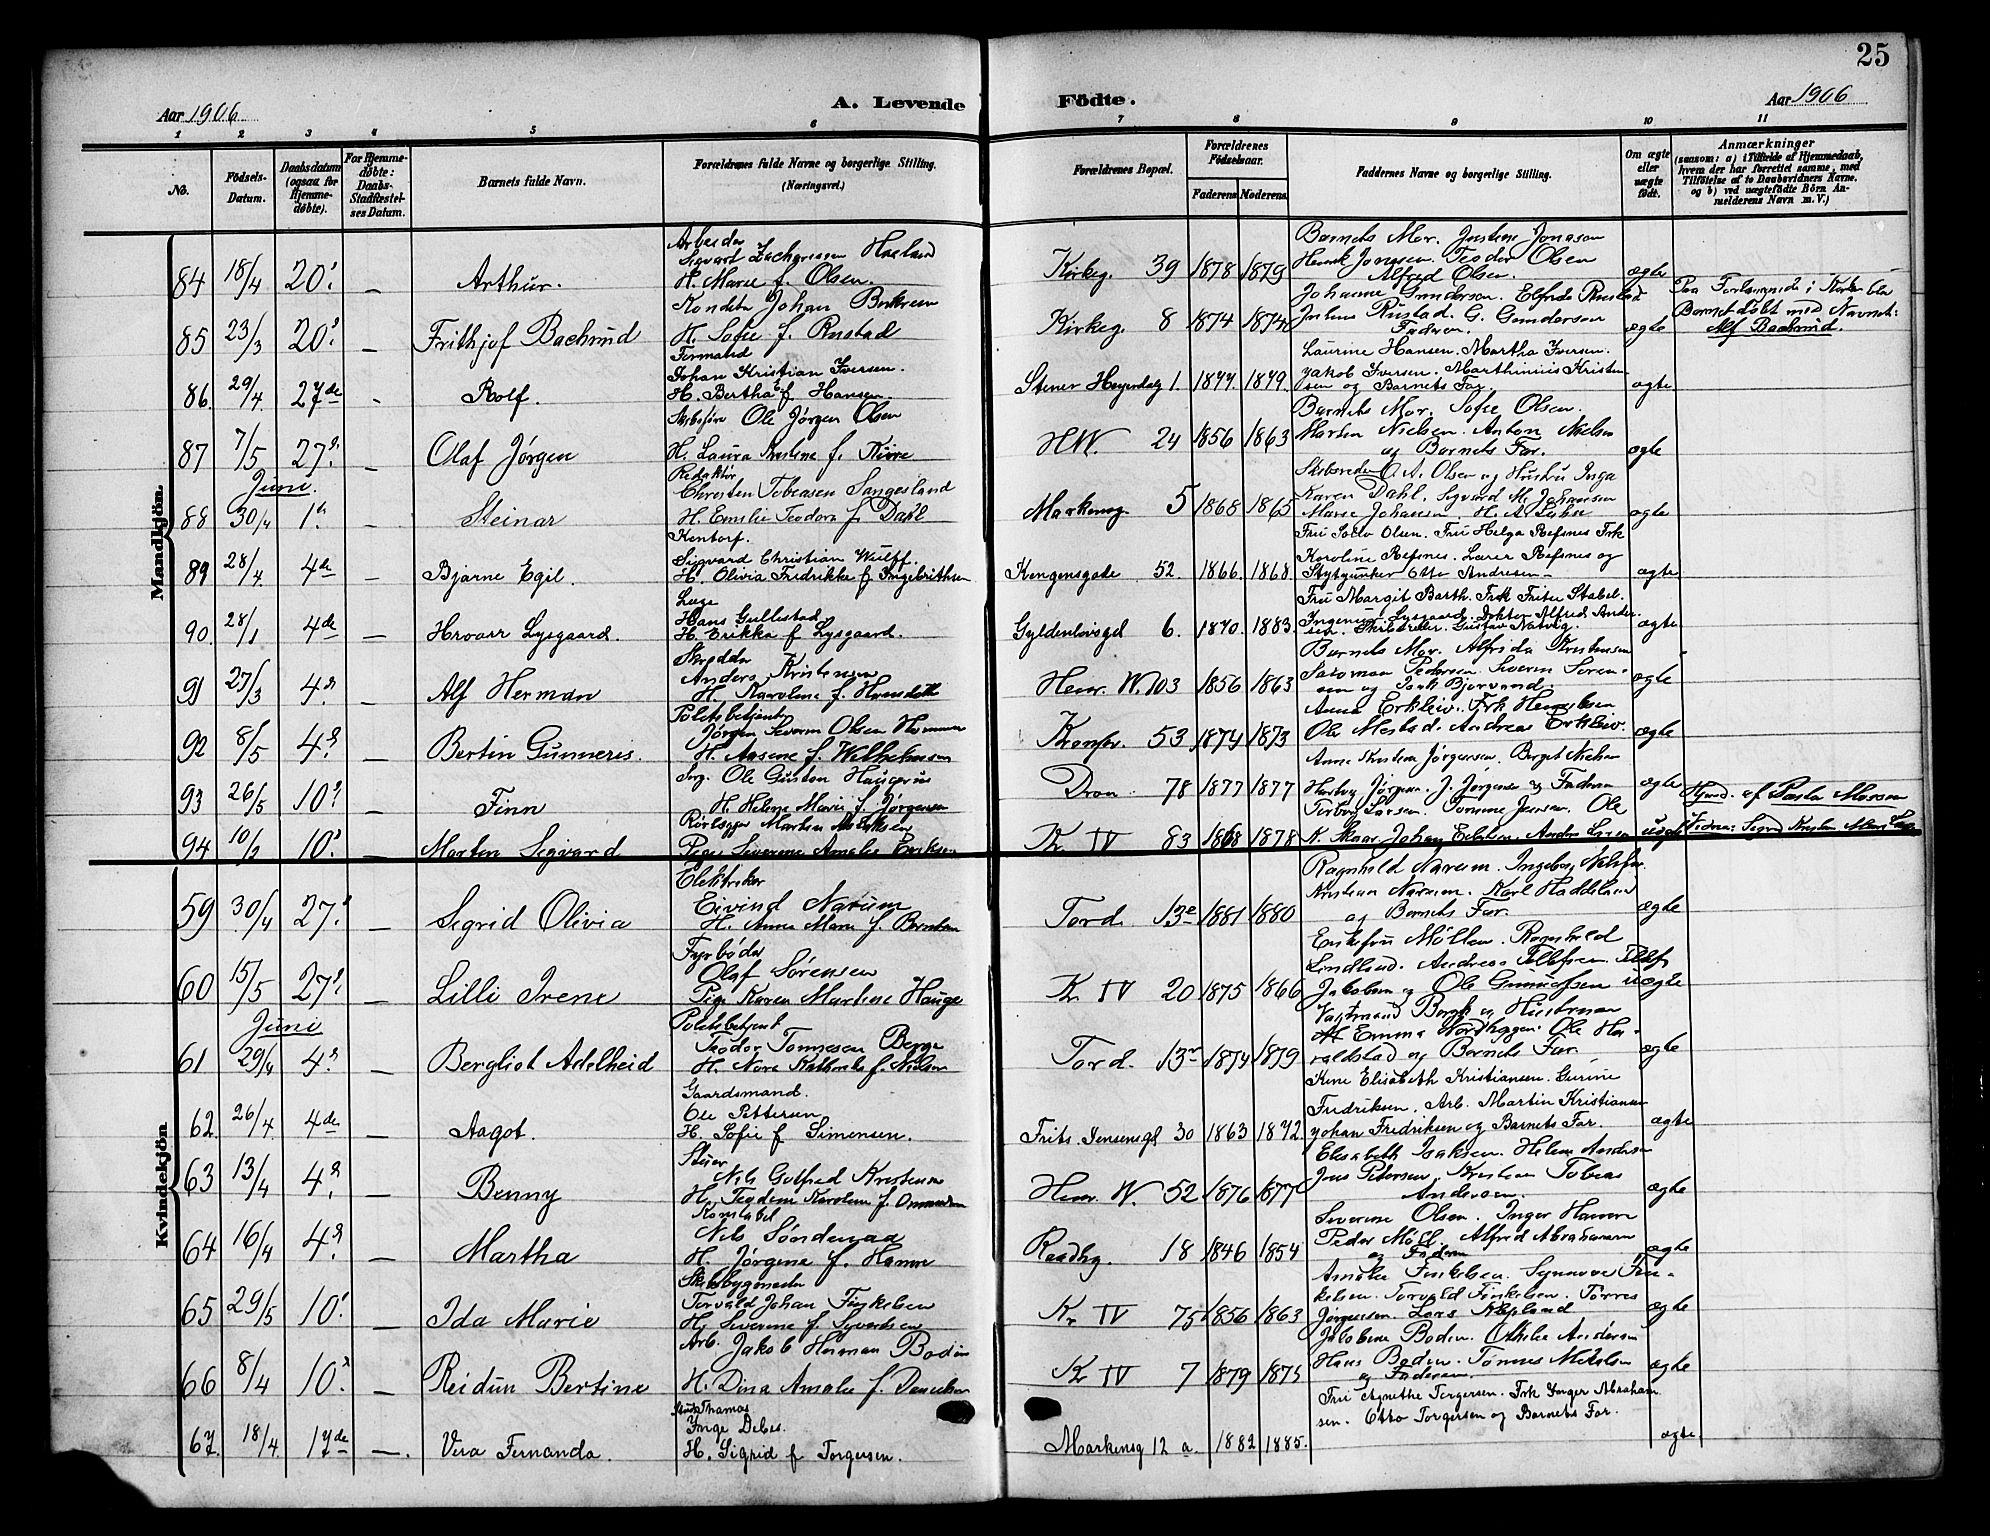 25
Aar 1906
A. Levende
Födte.
Aar 1906
1 2 3 4 5 6 7 8 9 10 11
No.
Födsels-Datum.
Daabsdatum (ogsaa for Hjemme-döbte).
For Hjemme-döbte: Daabs-Stadfæstel-ses Datum.
Barnets fulde Navn.
Forældrenes fulde Navne og borgerlige Stilling. (Næringsvei.)
Forældrenes Bopæl.
Forældrenes Födselsaar.
Faderens Moderens.
Faddernes Navne og borgerlige Stilling.
Om ægte eller uægte födt.
Anmærkninger
(saasom: a) i Tilfælde af Hjemmedaab,
hvem der har forrettet samme, med
Tilföielse af to Daabsvidners Navne.
og b) ved uægtefödte Börn An-
melderens Navn m. V.)
Mandkjön.
84 18/4 20. — Arthur.
Arbeider
Sigvart Zachariasen Haaland
H. Marie f. Olsen.
Kirkeg. 39 1878 1879
Barnets Mor. Justine Jonassen
Henrik Jonassen. Teodor Olsen
Alfred Olsen.
ægte
85 23/3 20. — Frithjof Bachrud
Konditor Johan
H. Sofie f. Rustad
Kirkeg. 8 1874 1874
Johanne Gundersen. Elfrida Rustad
Julius Rustad. G. Gundersen
Faderen.
ægte
Paa Forlangende i Kirken blev
Barnet døbt med Navnet:
Alf Bachrud.
86. 29/4 27de - Rolf.
Formand
Johan Kristian Iversen.
H. Bertha E. f Hansen.
Stener Heyerdalg 1. 1877. 1879.
Laurine Hansen. Martha Iversen.
Jakob Iversen. Marthinius Kristen-
sen og Barnets Far.
ægte
87 7/5 27. — Olaf Jørgen
Ole Jørgen Olsen
H. Laura Kristine f.
H.W. 24 1856 1863
Barnets Mor. Sofie Olsen.
Martin Nielsen. Anton Nielsen
og Barnets Far.
ægte
Juni.
88 30/4 1. — Steinar
Redaktør
Christen Tobiasen Sangesland
H. Emilie Teodora f. Dahl
Markensg. 5 1868 1865
Skibsreder O. A. Olsen og Hustru Inga
Karen Dahl. Sigvard M. Johansen
Marie Johansen. H. A.
ægte
89 28/4 4de — Bjarne Egil.
Kontorf.
Sigvard Christian Wulff.
H. Olivia Fredrikke f Ingebrithsen
Kongensgade 52. 1866. 1868.
Fru Olsen. Fru Helga Refsnes Frk
Karoline Refsnes. Lærer Refsnes og
Otto Andresen —
ægte
90. 28/1 4de — Hroarr Lysgaard.
Læge
Hans Gullestad
H. Erikka f Lysgaard.
Gyldenlövsgd 6. 1870. 1883.
Fru Margit Barth. Frk Frike Stabel.
Ingeniør Lysgaard. Doktor Alfred Ander-
sen. Gustav Natvig.
ægte
91 27/3 4. — Alf Herman
Skrædder
Anders Kristensen
H. Karoline f.
Henr. W. 103 1856 1863
Barnets Mor. Alfrida Kristensen
Salomon Pedersen. Severin Soren-
sen og Bjorvand.
ægte
92 8/5 4. — Bertin Gunneris.
Politibetjent
Jørgen Severin Olsen
H. Aasene f. Wilhelmsen
Kronpr. 53 1874 1873
Anna Erklev. Frk Henriksen
Ole Mestad. Andreas Erklev.
ægte
93 26/5 10. — Finn
Ole Gustav
H. Helene Marie f. Jørgensen
Dron. 78 1877 1877
Anne Kristine Jörgensen. Berget Nielsen
Hartvig Jørgen. J. Jørgensen og Faderen
ægte
Hjemd. af
94 10/2 10. — Marten Sigvard
Rørlægger Martin
Pige Severine Amalie Eriksen
K IV 83 1868 1878
Larsen. Jensen. Ole
K. Skaar Johan
uægte
Kvindekjön
59 30/4 27. — Sigrid Olivia
Elektriker
Eivind Narum
H. Anna Marie f. Berntsen
Tord. 13e 1881 1880
Ragnhild Narum. Ingeborg
Kristian Narum. Karl Haddeland
og Barnets Far.
ægte
60 15/5 27. — Lilli Irene
Fyrbøder
Olaf Sørensen
Pige Karen Martine Hauge
K IV 20 1875 1866
Enkefru Møller. Ragnhild
Lindland. Andreas Tellefsen. Tellef
Jakobsen og Ole Gunulfsen
uægte
Juni
61 29/4 4. — Bergliot Adelheid
Politibetjent
Teodor Tønnesen Berge
H. Nora Kathinka f. Nielsen
Tord. 13 1874 1879
Vagtmand Borgh og Hustru
Emma Nordhagen Ole Ha-
raldstad og Barnets Far.
ægte
62. 26/4. 4de — Aagot.
Gaardsmand.
Ole Pettersen
H. Sofie f Simensen.
Frits. Jensensgd 30 1863 1872.
Elisabeth Kristiansen. Gurine
Fredriksen. Arb. Martin Kristiansen
Johan Fredriksen og Barnets Far.
ægte
63 13/4 4. — Benny
Nils Gotfred Kristensen
H. Karoline f.
Henr. W. 52 1876 1877
Elisabeth Isaksen. Helene Andersen
Jens Petersen. Kristian Tobias
Andersen.
ægte
64 16/4 4. — Martha
Konstabel
Nils Søndenaa
H. Jørgine f. Hamre
Raadhg. 18 1846 1854
Severine Olsen. Inger Hamre
Peder Møll. Alfred Abrahamsen
og Faderen
ægte
65 29/5 10. — Ida Marie
Skibsbygmester
Torvald Johan Finkelsen
H. Severine f. Syvertsen
K. IV 75 1856 1863
Amalie Finkelsen. Synnøve Fin-
kelsen. Torvald Finkelsen. Torres
Jørgensen. Lars
ægte
66 8/4 10. — Reidun Bertine
Arb. Jakob Herman Bodin
H. Dina Amalie f. Danielsen
K IV 7 1879 1875
Jakobine Boden. Othilie Andersen
Hans Boden. Tønnes
og Faderen.
ægte
67. 18/4 17de —. Vera Fernanda.
Thomas
Inge Debes.
H. Sigrid f Torgersen.
Markensg 12 a. 1882 1885.
Fru Agnethe Torgersen. Frk Inger Abraham
sen. Otto Torgersen og Barnets Far.
ægte